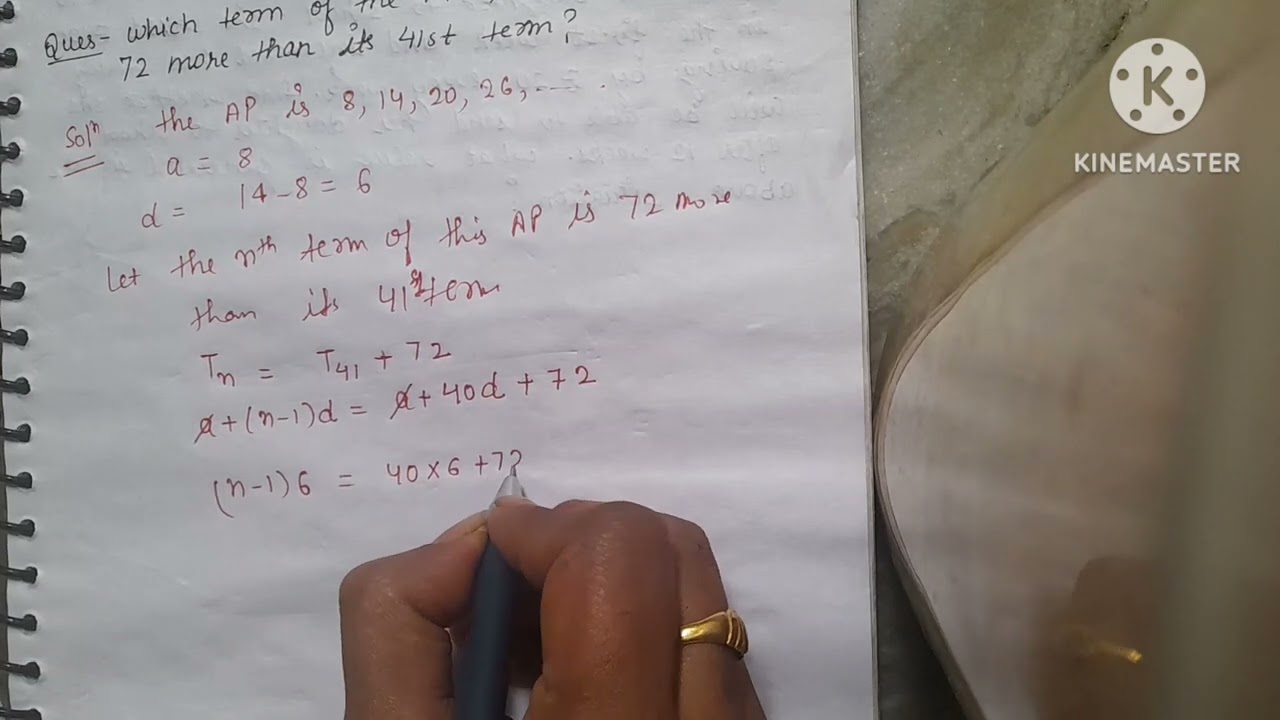 Ques- which term of the
72 more than its 41st term?
Solⁿ the AP is 8, 14, 20, 26, ---- .
a = 8
d = 14-8 = 6
Let the nth term of this AP is 72 more
than its 41st term
Tn = T41 + 72
a+(n-1)d = a+ 40d + 72
(n-1)6 = 40×6 +72
K
KINEMASTER